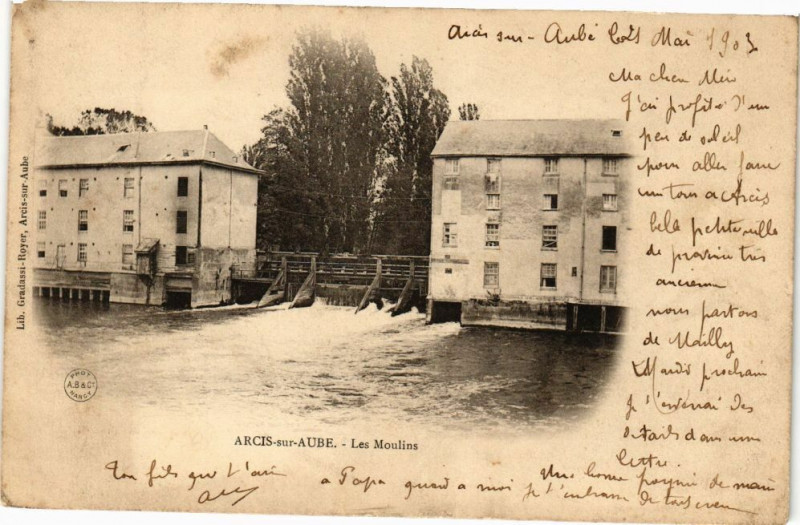 Arcis sur-Aube le 21 Mai 1903
Ma chère Mère
J'ai profité d'un
peu de soleil
pour aller faire
un tour à Arcis
belle petite ville
de province très
ancienne
nous partons
de Mailly
Mardi prochain
je t'écrirai des
détails dans une
lettre.
Ton fils qui t'aime
Une bonne poignée de main
à Papa quand à moi je t'embrasse de tout coeur
Lib. Gradassi-Royer, Arcis-sur-Aube
PHOT
A.B & Cie
NANCY
ARCIS-sur-AUBE. - Les Moulins